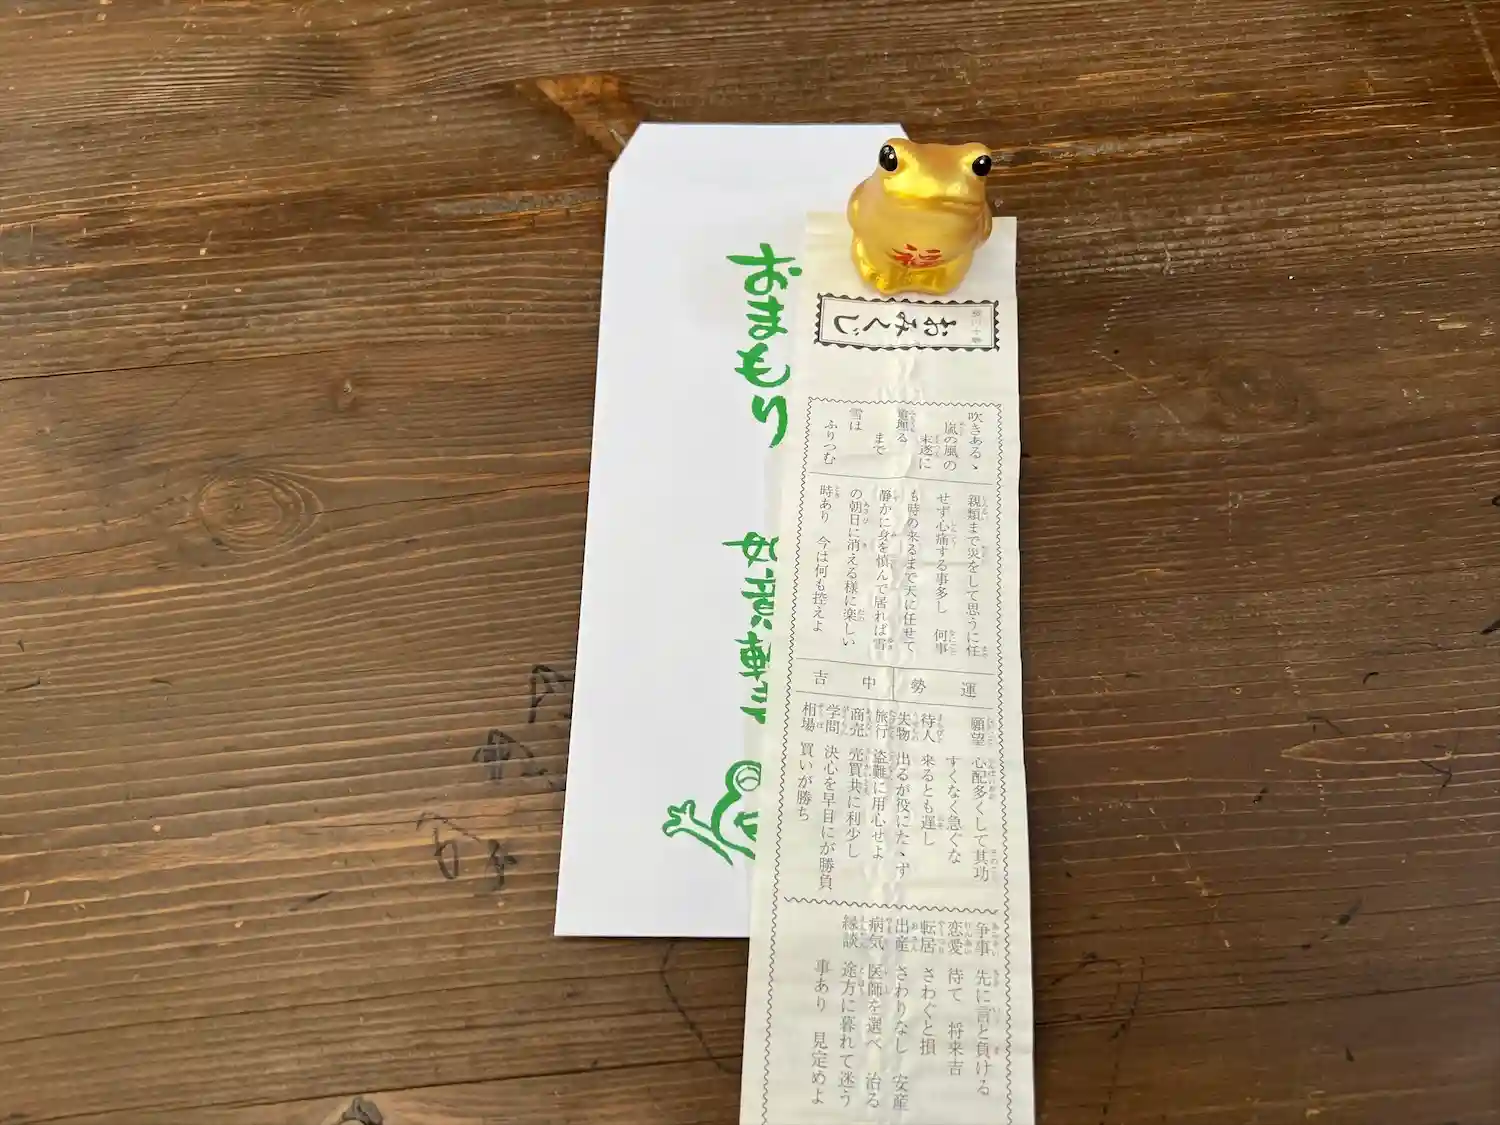 おまもり
福
おみくじ
吹きあるゝ
嵐の風の
末遂に
道埋る
まで
雪は
ふりつむ
親類まで災をして思うに任
せず心痛する事多し 何事
も時の来るまで天に任せて
静かに身を慎んで居れば雪
の朝日に消える様に楽しい
時あり 今は何も控えよ
運勢中吉
願望 心配多くして其功
すくなく急ぐな
待人 来るとも遅し
失物 出るが役にたゝず
旅行 盗難に用心せよ
商売 売買共に利少し
学問 決心を早目にが勝負
相場 買いが勝ち
争事 先に言と負ける
恋愛 待て 将来吉
転居 さわぐと損
出産 さわりなし 安産
病気 医師を選べ 治る
縁談 途方に暮れて迷う
事あり 見定めよ